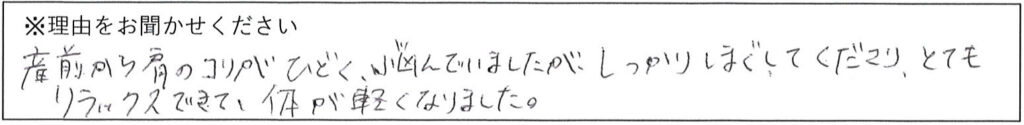 ※理由をお聞かせください
産前から肩のコリがひどく、悩んでいましたが、しっかりほぐしてくださり、とても
リラックスできて、体が軽くなりました。